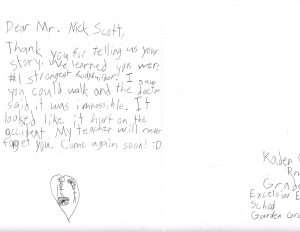 Dear Mr. Nick Scott,
Thank you for telling us your
story. We learned you were
#1 strongest bodybuilder! I saw
you could walk and the doctor
said it was impossible. It
looked like it hurt on the
accident. My teacher will never
forget you. Come again soon! :D
Kaden
Grade
Excelsior E
School
Garden Gro